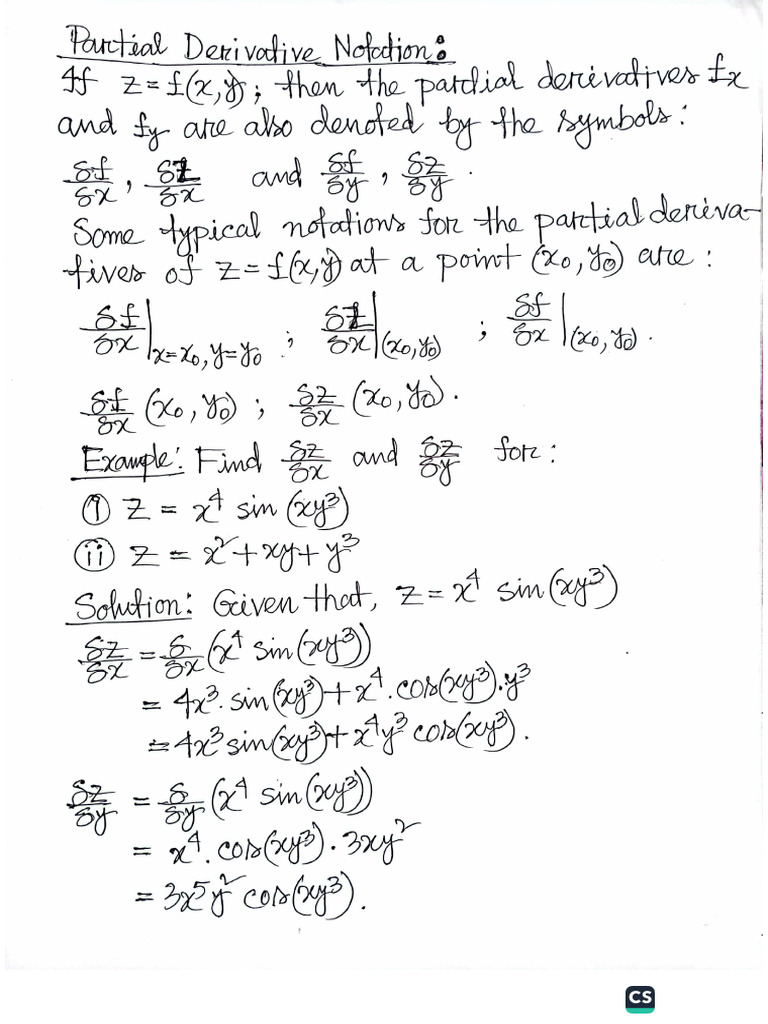 Partial Derivative Notation:
If z = f(x,y); then the partial derivatives fx
and fy are also denoted by the symbols:
δf/δx, δz/δx and δf/δy, δz/δy.
Some typical notations for the partial deriva-
tives of z = f(x,y) at a point (x₀, y₀) are:
δf/δx|x=x₀, y=y₀ ; δz/δx|(x₀,y₀) ; δf/δx|(x₀,y₀).
δf/δx (x₀, y₀) ; δz/δx (x₀, y₀).
Example: Find δz/δx and δz/δy for:
(i) z = x⁴ sin(xy³)
(ii) z = x² + xy + y³
Solution: Given that, z = x⁴ sin(xy³)
δz/δx = δ/δx (x⁴ sin(xy³))
= 4x³. sin(xy³) + x⁴. cos(xy³). y³
= 4x³ sin(xy³) + x⁴y³ cos(xy³).
δz/δy = δ/δy (x⁴ sin(xy³))
= x⁴. cos(xy³). 3xy²
= 3x⁵y² cos(xy³).
CS